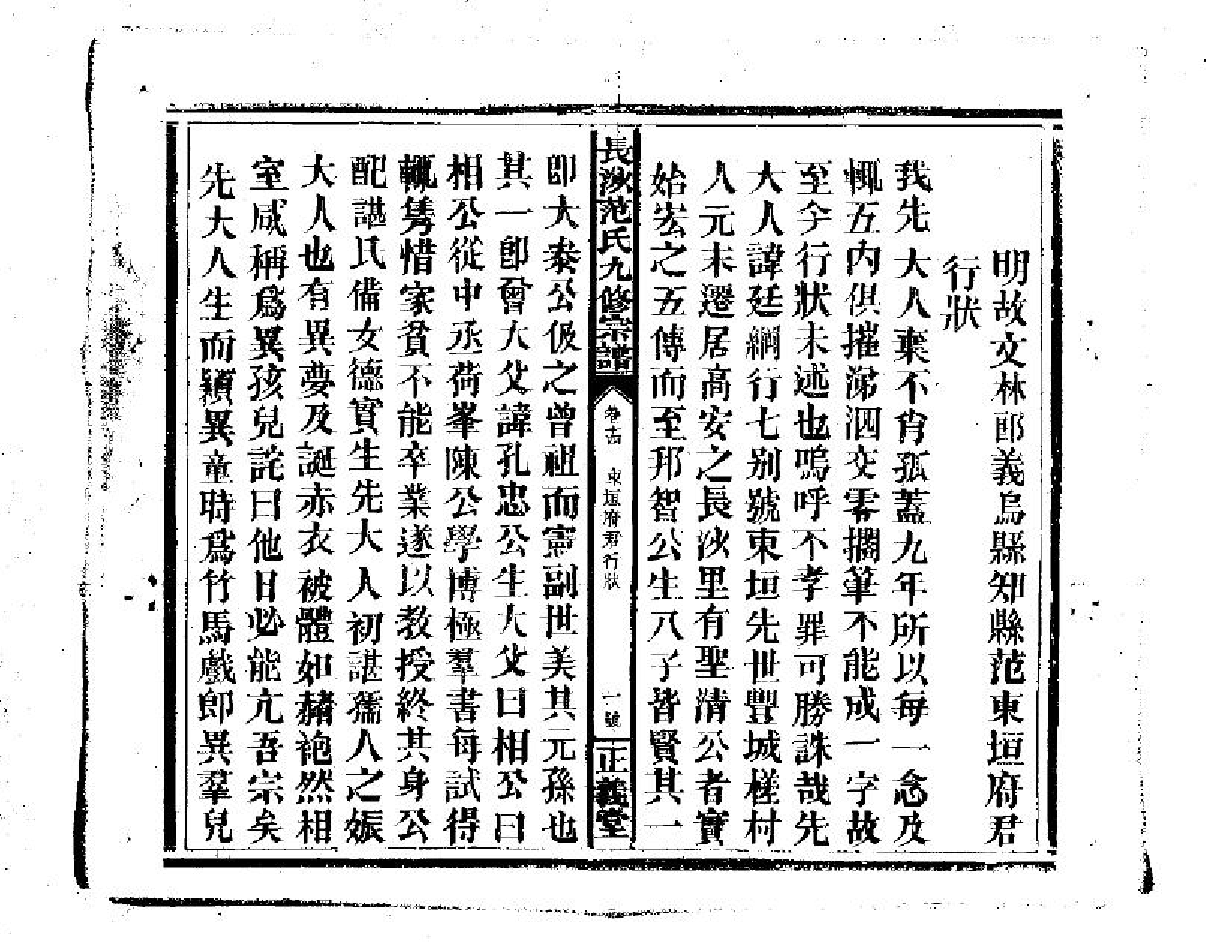 明故文林郎義烏縣知縣范東垣府君
行狀
我先大人棄不肖孤蓋九年所以每一念及
輒五內俱摧涕泗交零擱筆不能成一字故
至今行狀未述也嗚呼不孝罪可勝誅哉先
大人諱廷綱行七別號東垣先世豐城槎村
人元末遷居高安之長汝里有聖清公者實
始宏之五傳而至邦智公生八子皆賢其一
長汝范氏九修宗譜
卷十四 東垣府君行狀
一號
正義堂
即大泰公伋之曾祖而憲副世美其元孫也
其一卽曾大父諱孔忠公生大父曰相公曰
相公從中丞荷峯陳公學博極羣書每試得
輒雋惜家貧不能卒業遂以教授終其身公
配諶氏備女德實生先大人初諶孺人之娠
大人也有異夢及誕赤衣被體如赭袍然相
室咸稱爲異孩兒詫曰他日必能亢吾宗矣
先大人生而穎異童時爲竹馬戲郎異羣兒